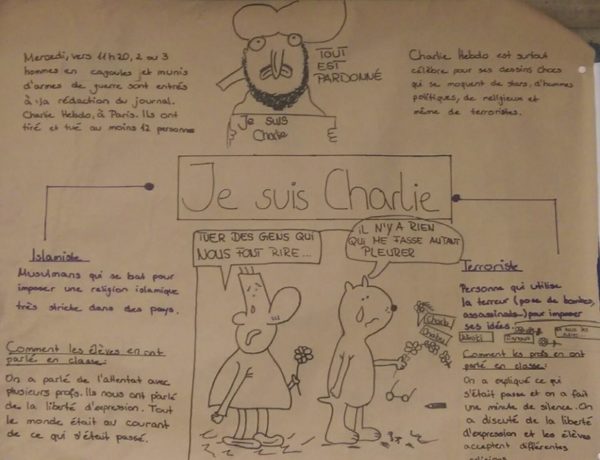 Mercredi, vers 11h20, 2 ou 3
hommes en cagoules et munis
d'armes de guerre sont entrés
à la rédaction du journal.
Charlie Hebdo, à Paris. Ils ont
tiré et tué au moins 12 personnes
TOUT
EST
PARDONNÉ
Je suis
Charlie
Charlie Hebdo est surtout
célèbre pour ses dessins chocs
qui se moquent de stars, d'hommes
politiques, de religieux et
même de terroristes.
Je suis Charlie
Islamiste
Musulmans qui se bat pour
imposer une religion islamique
très stricte dans des pays.
Comment les élèves en ont
parlé en classe:
On a parlé de l'attentat avec
plusieurs profs. Ils nous ont parlé
de la liberté d'expression. Tout
le monde était au courant
de ce qui s'était passé.
TUER DES GENS QUI
NOUS FONT RIRE...
IL N'Y A RIEN
QUI ME FASSE AUTANT
PLEURER
Charlie
Terroriste
Personne qui utilise
la terreur (pose de bombes,
assassinats...) pour imposer
ses idées.
Comment les profs en ont
parlé en classe:
On a expliqué ce qui
s'était passé et on a fait
une minute de silence. On
a discuté de la liberté
d'expression et les élèves
acceptent différentes